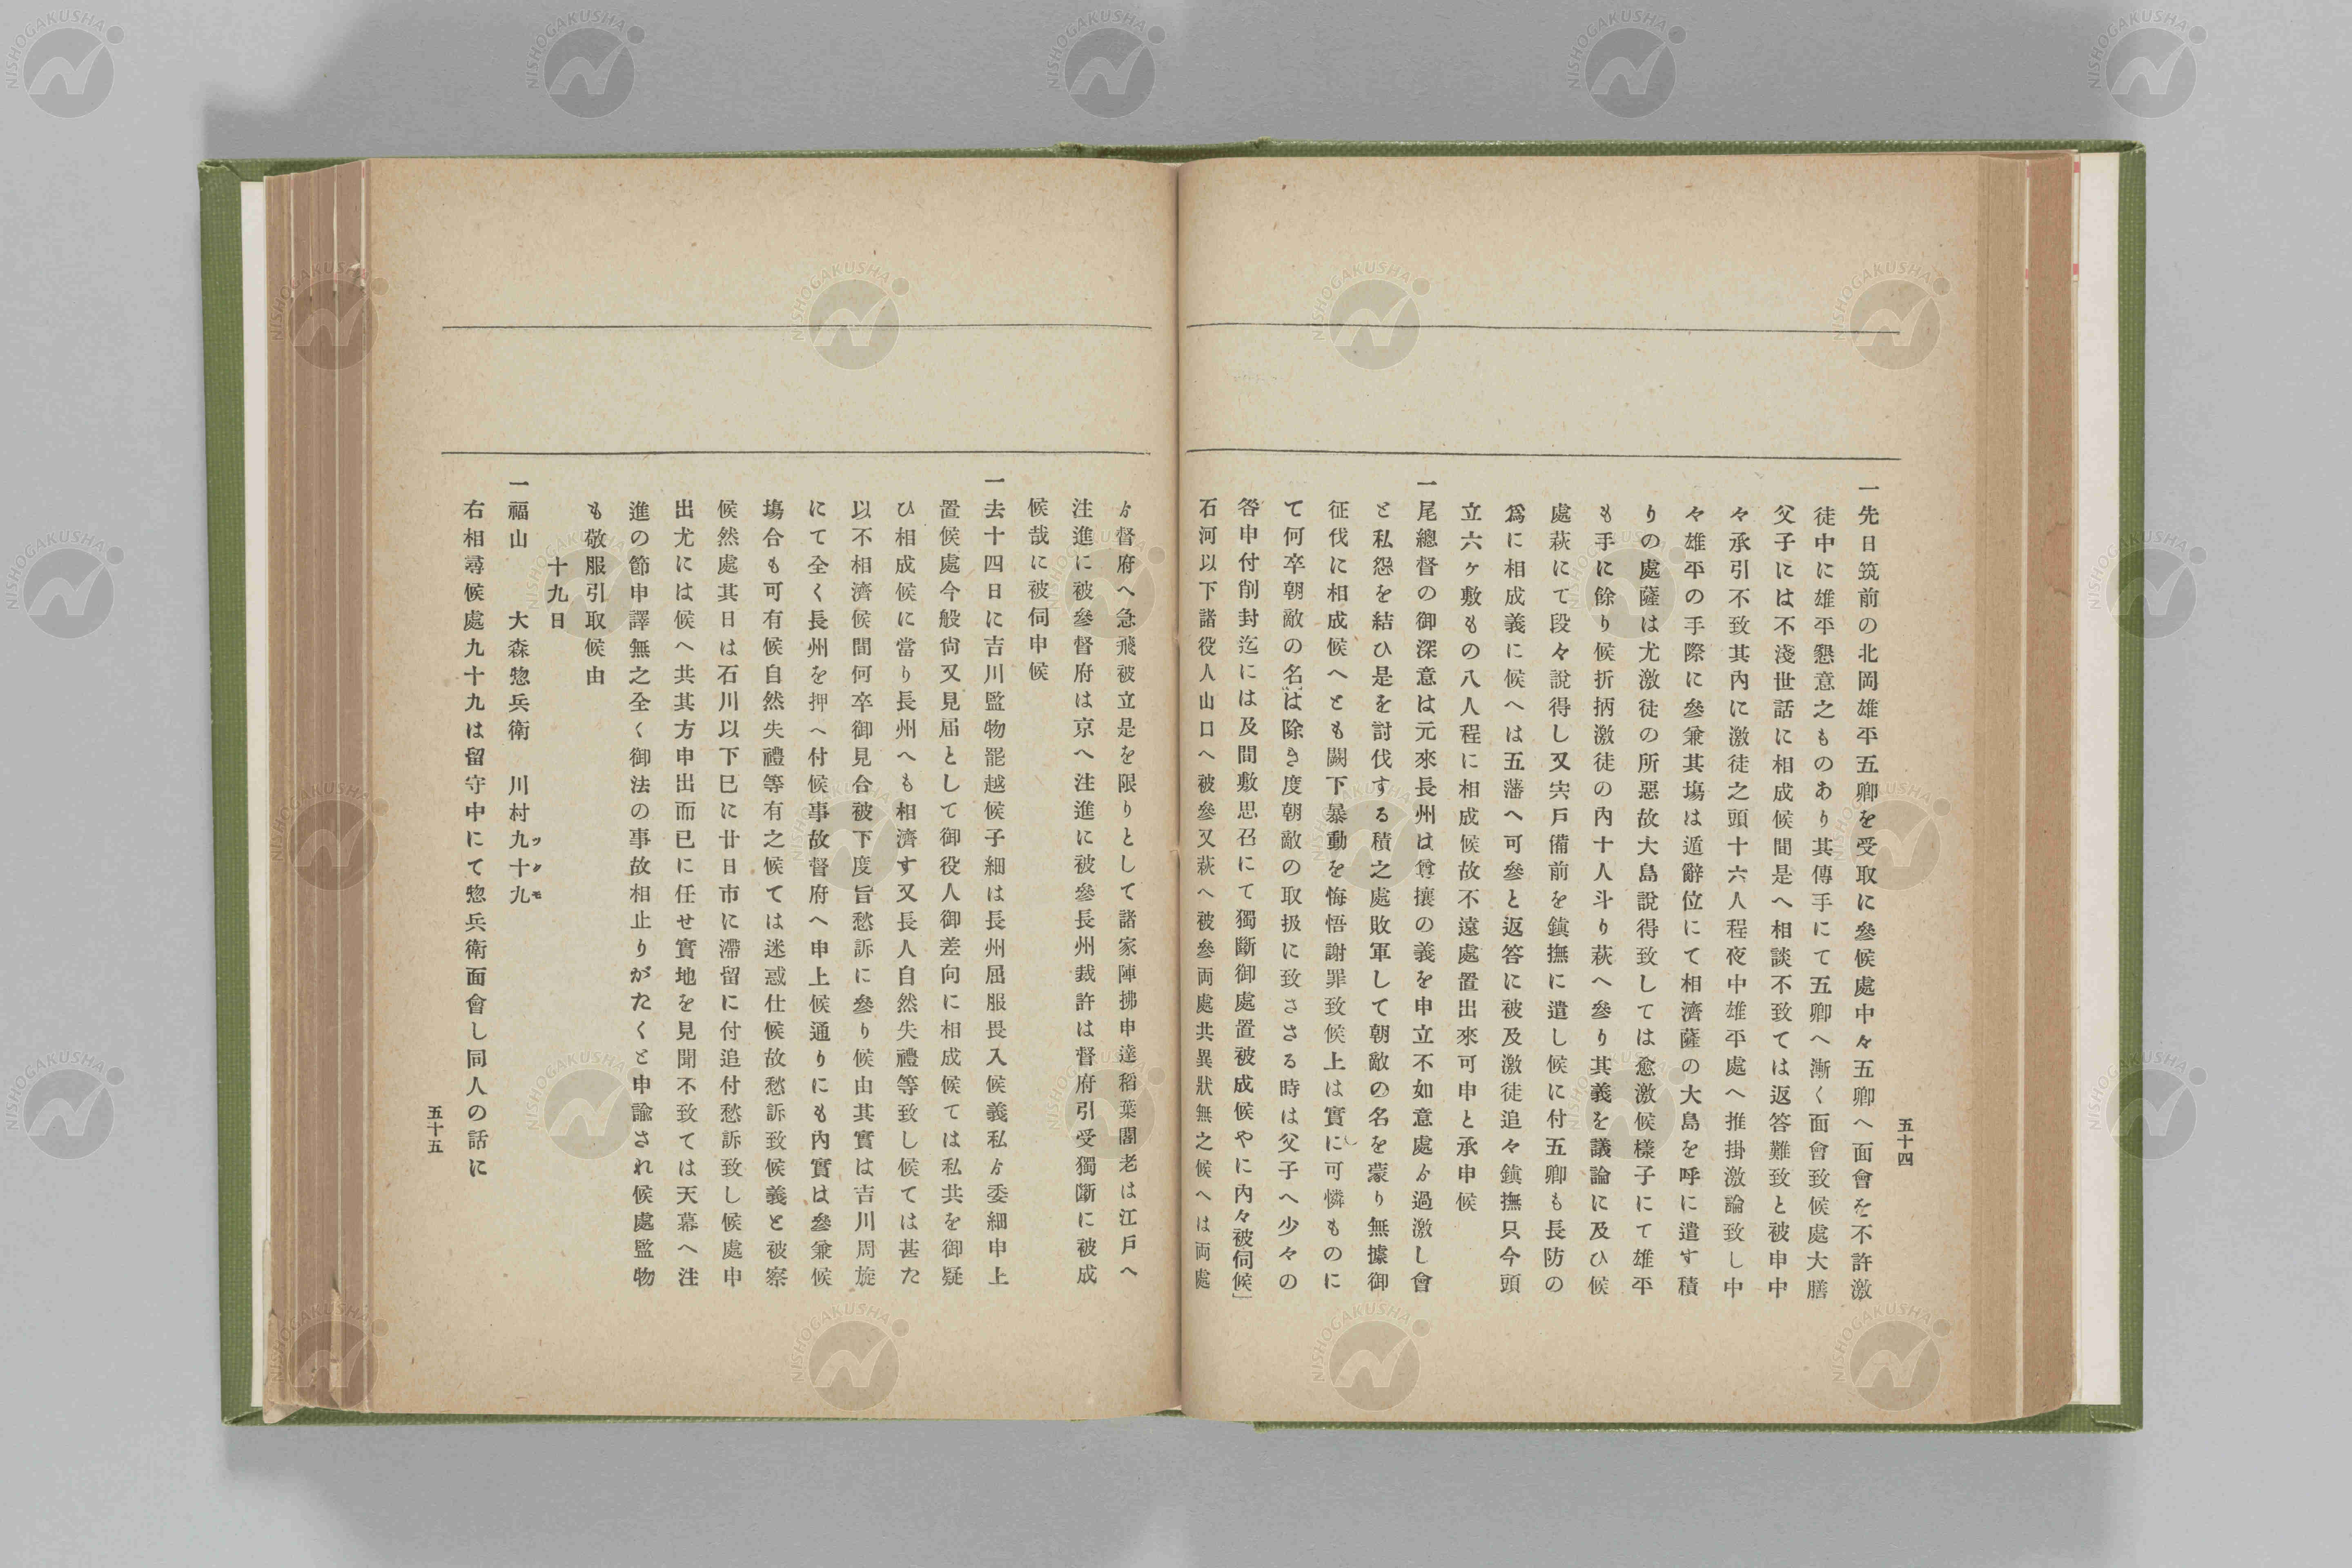 五十四
一先日筑前の北岡雄平五卿を受取に參候處中々五卿へ面會を不許激
徒中に雄平懇意之ものあり其傳手にて五卿へ漸く面會致候處大膳
父子には不淺世話に相成候間是へ相談不致ては返答難致と被申中
々承引不致其內に激徒之頭十六人程夜中雄平處へ推掛激論致し中
々雄平の手際に參兼其塲は遁辭位にて相濟薩の大島を呼に遣す積
りの處薩は尤激徒の所惡故大島說得致しては愈激候樣子にて雄平
も手に餘り候折柄激徒の內十人斗り萩へ參り其義を議論に及ひ候
處萩にて段々說得し又宍戶備前を鎭撫に遣し候に付五卿も長防の
爲に相成義に候へは五藩へ可參と返答に被及激徒追々鎭撫只今頭
立六ヶ敷もの八人程に相成候故不遠處置出來可申と承申候
一尾總督の御深意は元來長州は尊攘の義を申立不如意處ゟ過激し會
と私怨を結ひ是を討伐する積之處敗軍して朝敵の名を蒙り無據御
征伐に相成候へとも闕下暴動を悔悟謝罪致候上は實に可憐ものに
て何卒朝敵の名は除き度朝敵の取扱に致さゝる時は父子へ少々の
咎申付削封迄には及間敷思召にて獨斷御處置被成候やに內々被伺候」
石河以下諸役人山口へ被參又萩へ被參両處共異狀無之候へは両處
ゟ督府へ急飛被立是を限りとして諸家陣拂申達稻葉閣老は江戶へ
注進に被參督府は京へ注進に被參長州裁許は督府引受獨斷に被成
候哉に被伺申候
一去十四日に吉川監物罷越候子細は長州屈服畏入候義私ゟ委細申上
置候處今般尙又見届として御役人御差向に相成候ては私共を御疑
ひ相成候に當り長州へも相濟す又長人自然失禮等致し候ては甚た
以不相濟候間何卒御見合被下度旨愁訴に參り候由其實は吉川周旋
にて全く長州を押へ付候事故督府へ申上候通りにも內實は參兼候
塲合も可有候自然失禮等有之候ては迷惑仕候故愁訴致候義と被察
候然處其日は石川以下巳に廿日市に滯留に付追付愁訴致し候處申
出尤には候へ共其方申出而已に任せ實地を見聞不致ては天幕へ注
進の節申譯無之全く御法の事故相止りがたくと申諭され候處監物
も敬服引取候由
十九日
一福山　大森惣兵衛　川村九十九
ツクモ
右相尋候處九十九は留守中にて惣兵衛面會し同人の話に
五十五
NISHOGAKUSHA